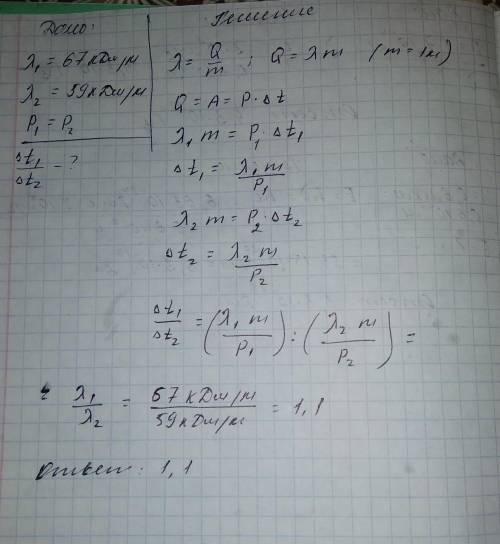 Дано:
λ₁ = 67 кДж/м
λ₂ = 59 кДж/м
P₁ = P₂
Δt₁/Δt₂ - ?
Решение
λ = Q/m ; Q = λm (m = 1м)
Q = A = P · Δt
λ₁ m = P₁ · Δt₁
Δt₁ = λ₁ m/P₁
λ₂ m = P₂ · Δt₂
Δt₂ = λ₂ m/P₂
Δt₁/Δt₂ = (λ₁ m/P₁) : (λ₂ m/P₂) =
λ₁/λ₂ = 67 кДж/м/59 кДж/м = 1,1
Ответ: 1,1